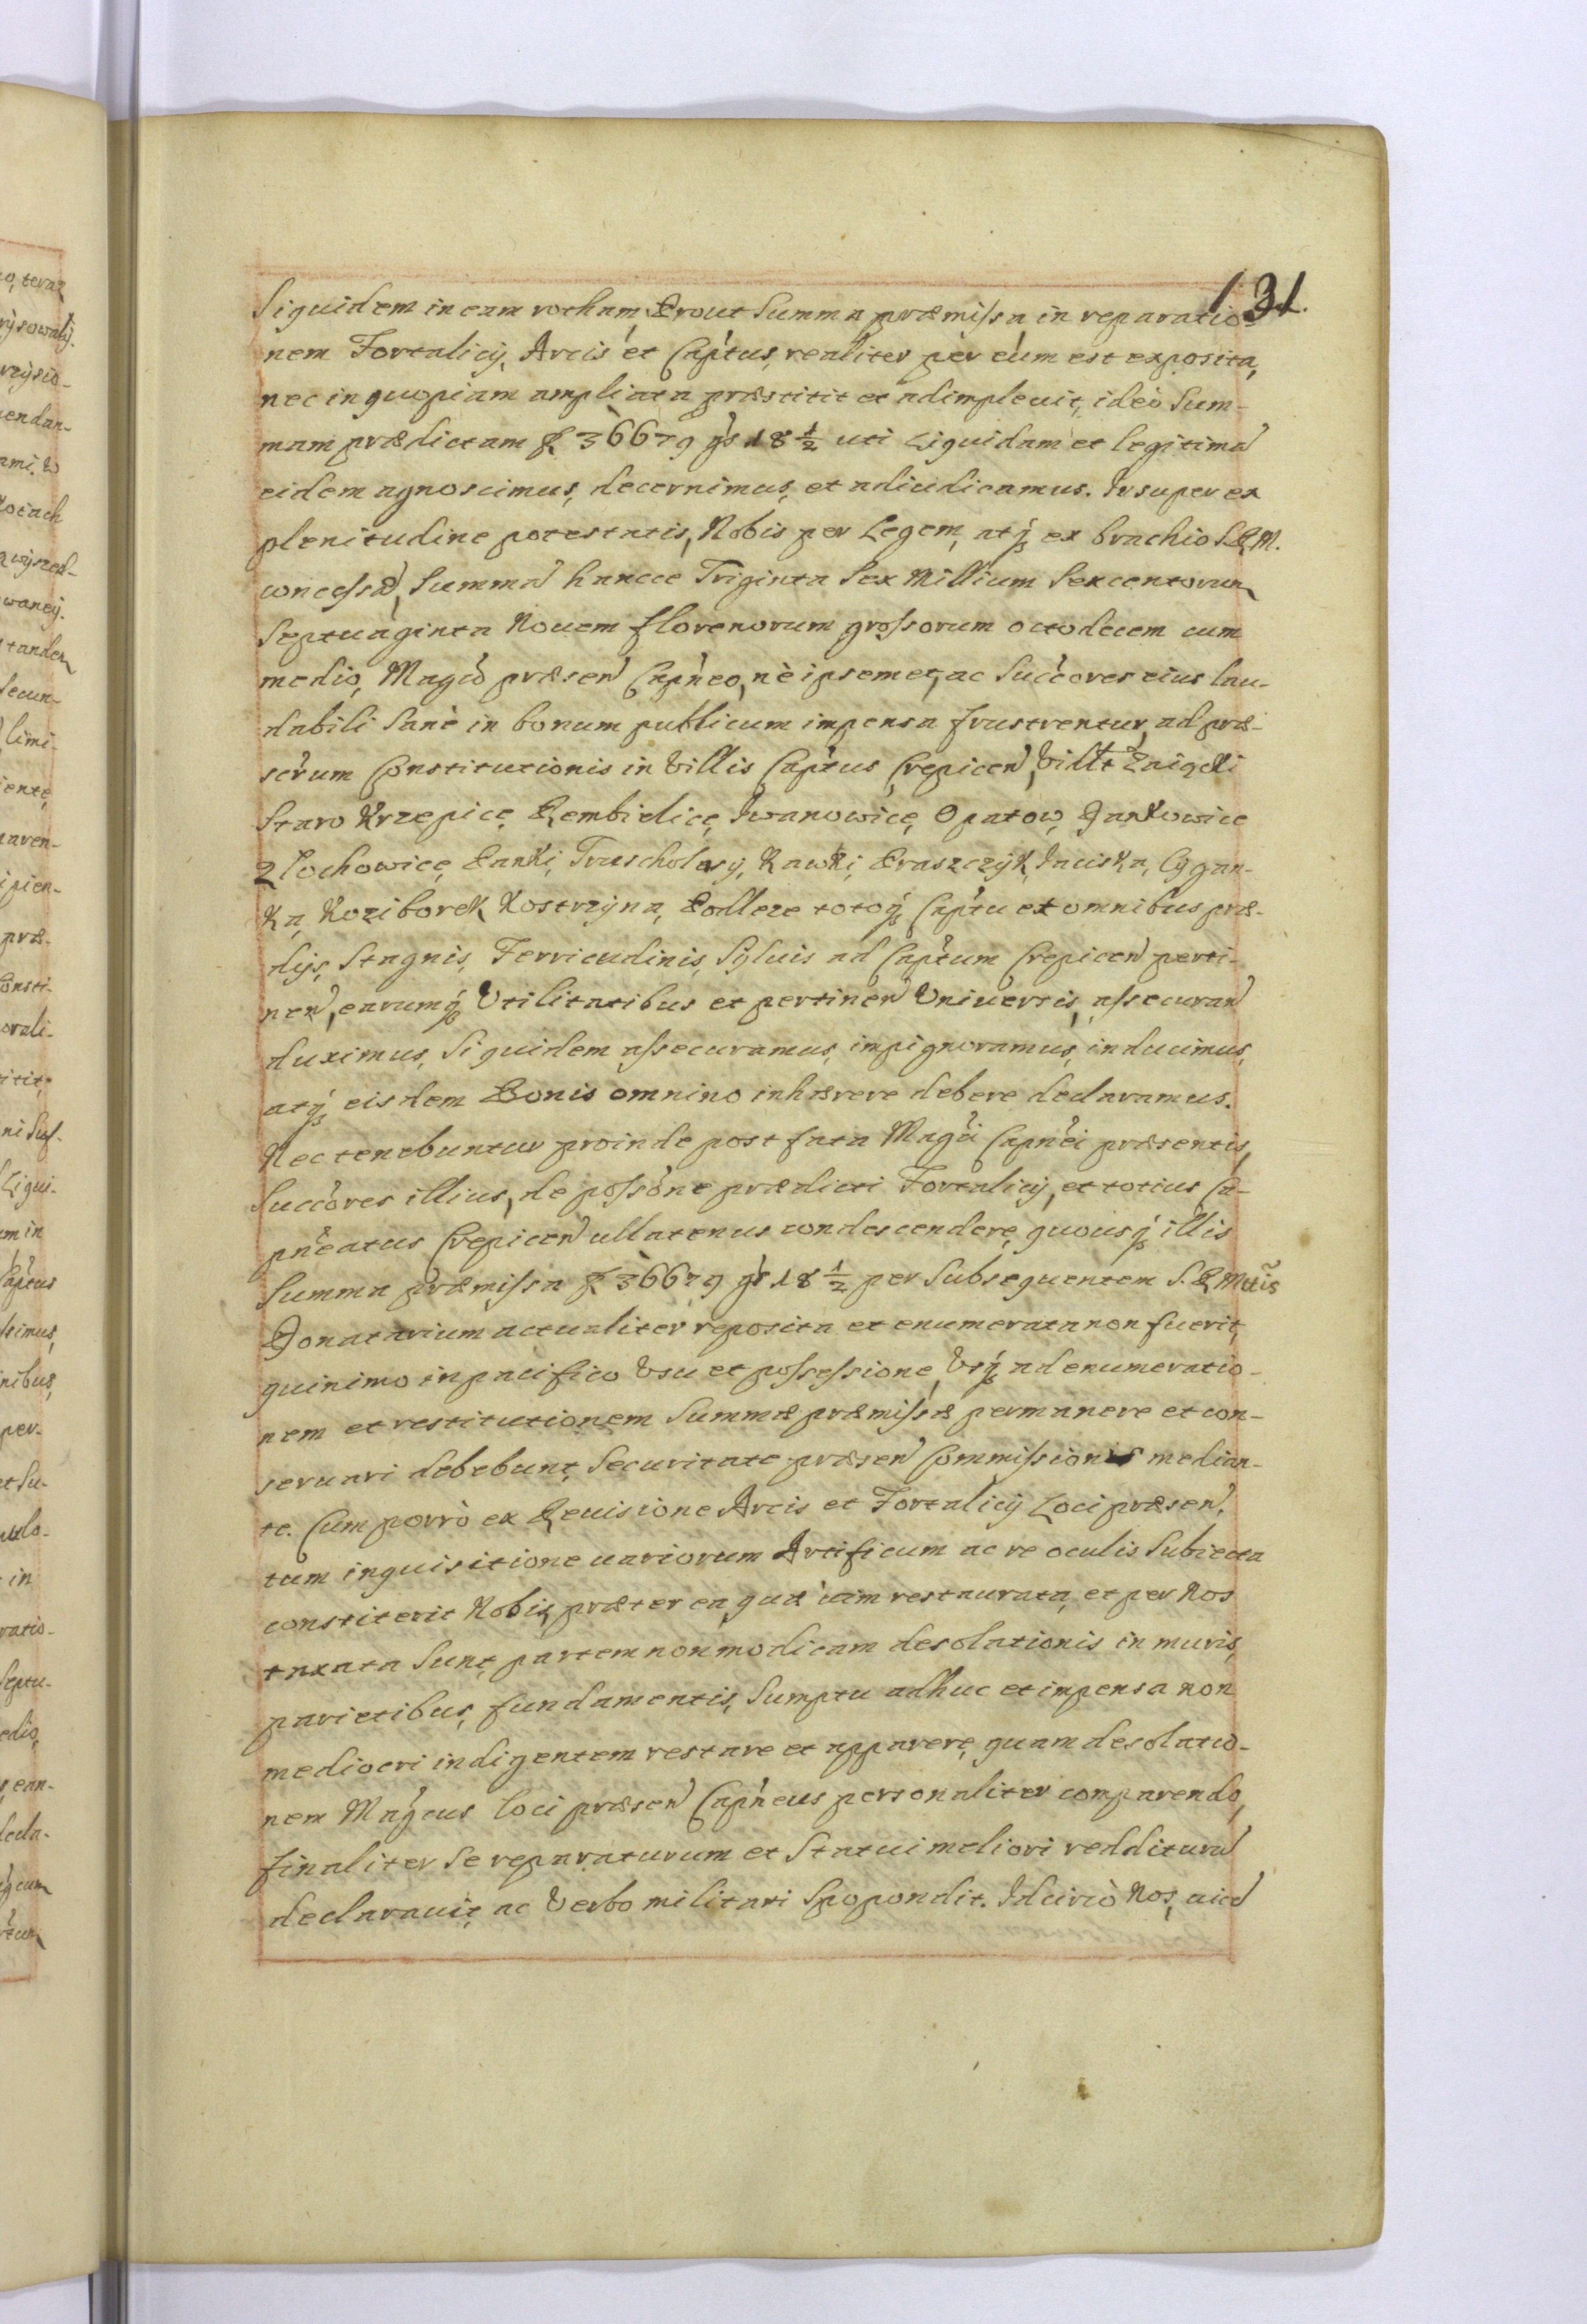 131.
Siquidem in eam rotham, Prout Summa præmissa, in reparatio-
nem Fortalicij, Arcis et Captus, realiter per eum est exposita,
nec in quopiam ampliata præstitit et adimpleuit, ideò Sum-
mam prædictam fl 36679 gs 18 1/2 uti Liquidam et legitimã
eidem agnoscimus, decernimus, et adiudicamus. Insuper ex
plenitudine potestatis, Nobis per Legem, atq ex brachio S.R.M.
concessa, Summã hancce Triginta Sex Millium Sexcentorum
Septuaginta Nouem florenorum grossorum octodecem cum
medio, Magco præsen Capneo, nè ipsemet, ac Succores eius lau-
dabili Sanè in bonum publicum impensa frustrentur, ad præ-
scrum Constitutionis in Villis Captus Crepicen, Vidlt Zaigcki
Staro Krzepice, Rembielice, Iwanowice, Opatow, Dankowice
Zlochowice, Panki, Truscholasy, Kawki, Praszczyk, Iaciska, Cygan-
ka, Koziborek, Kostrzyna, Podleze totoq Captu et omnibus præ-
dijs, Stagnis, Ferricudinis, Syluis ad Captum Crepicen perti-
nen, earumq Vtilitatibus et pertinen Vniuersis, assecuran
duximus, Siquidem assecuramus, impignoramus, inducimus,
atq eisdem Bonis omnino inhærere debere declaramus.
Nec tenebuntur proinde post fata Magci Capnei præsentis,
Succores illius, de possone prædicti Fortalicij, et totius Ca-
pneatus Crepicen ullatenus condescendere, quousq illis
Summa præmissa fl 36679 gs 18 1/2 per Subsequentem S.R.Mttis
Donatarium actualiter reposita et enumerata non fuerit,
quinimo in pacifico Vsu et possessione, Vsq ad enumeratio-
nem et restitutionem Summæ præmissæ permanere et con-
seruari debebunt, Securitate præsen Commissionis median-
te. Cum porrò ex Reuisione Arcis et Fortalicij Loci præsen,
tum inquisitione uariorum Artificum ac re oculis Subiecta
constiterit Nobis, præter ea quæ iam restaurata, et per Nos
taxata Sunt, partem non modicam desolationis in muris,
parietibus, fundamentis, Sumptu adhuc et impensa non
mediocri indigentem restare et apparere, quam desolatio-
nem Magcus loci præsen Capneus personaliter comparendo,
finaliter Se reparaturum et Statui meliori redditurũ
declarauit, ac Verbo militari Spopondit. Idcircò Nos,